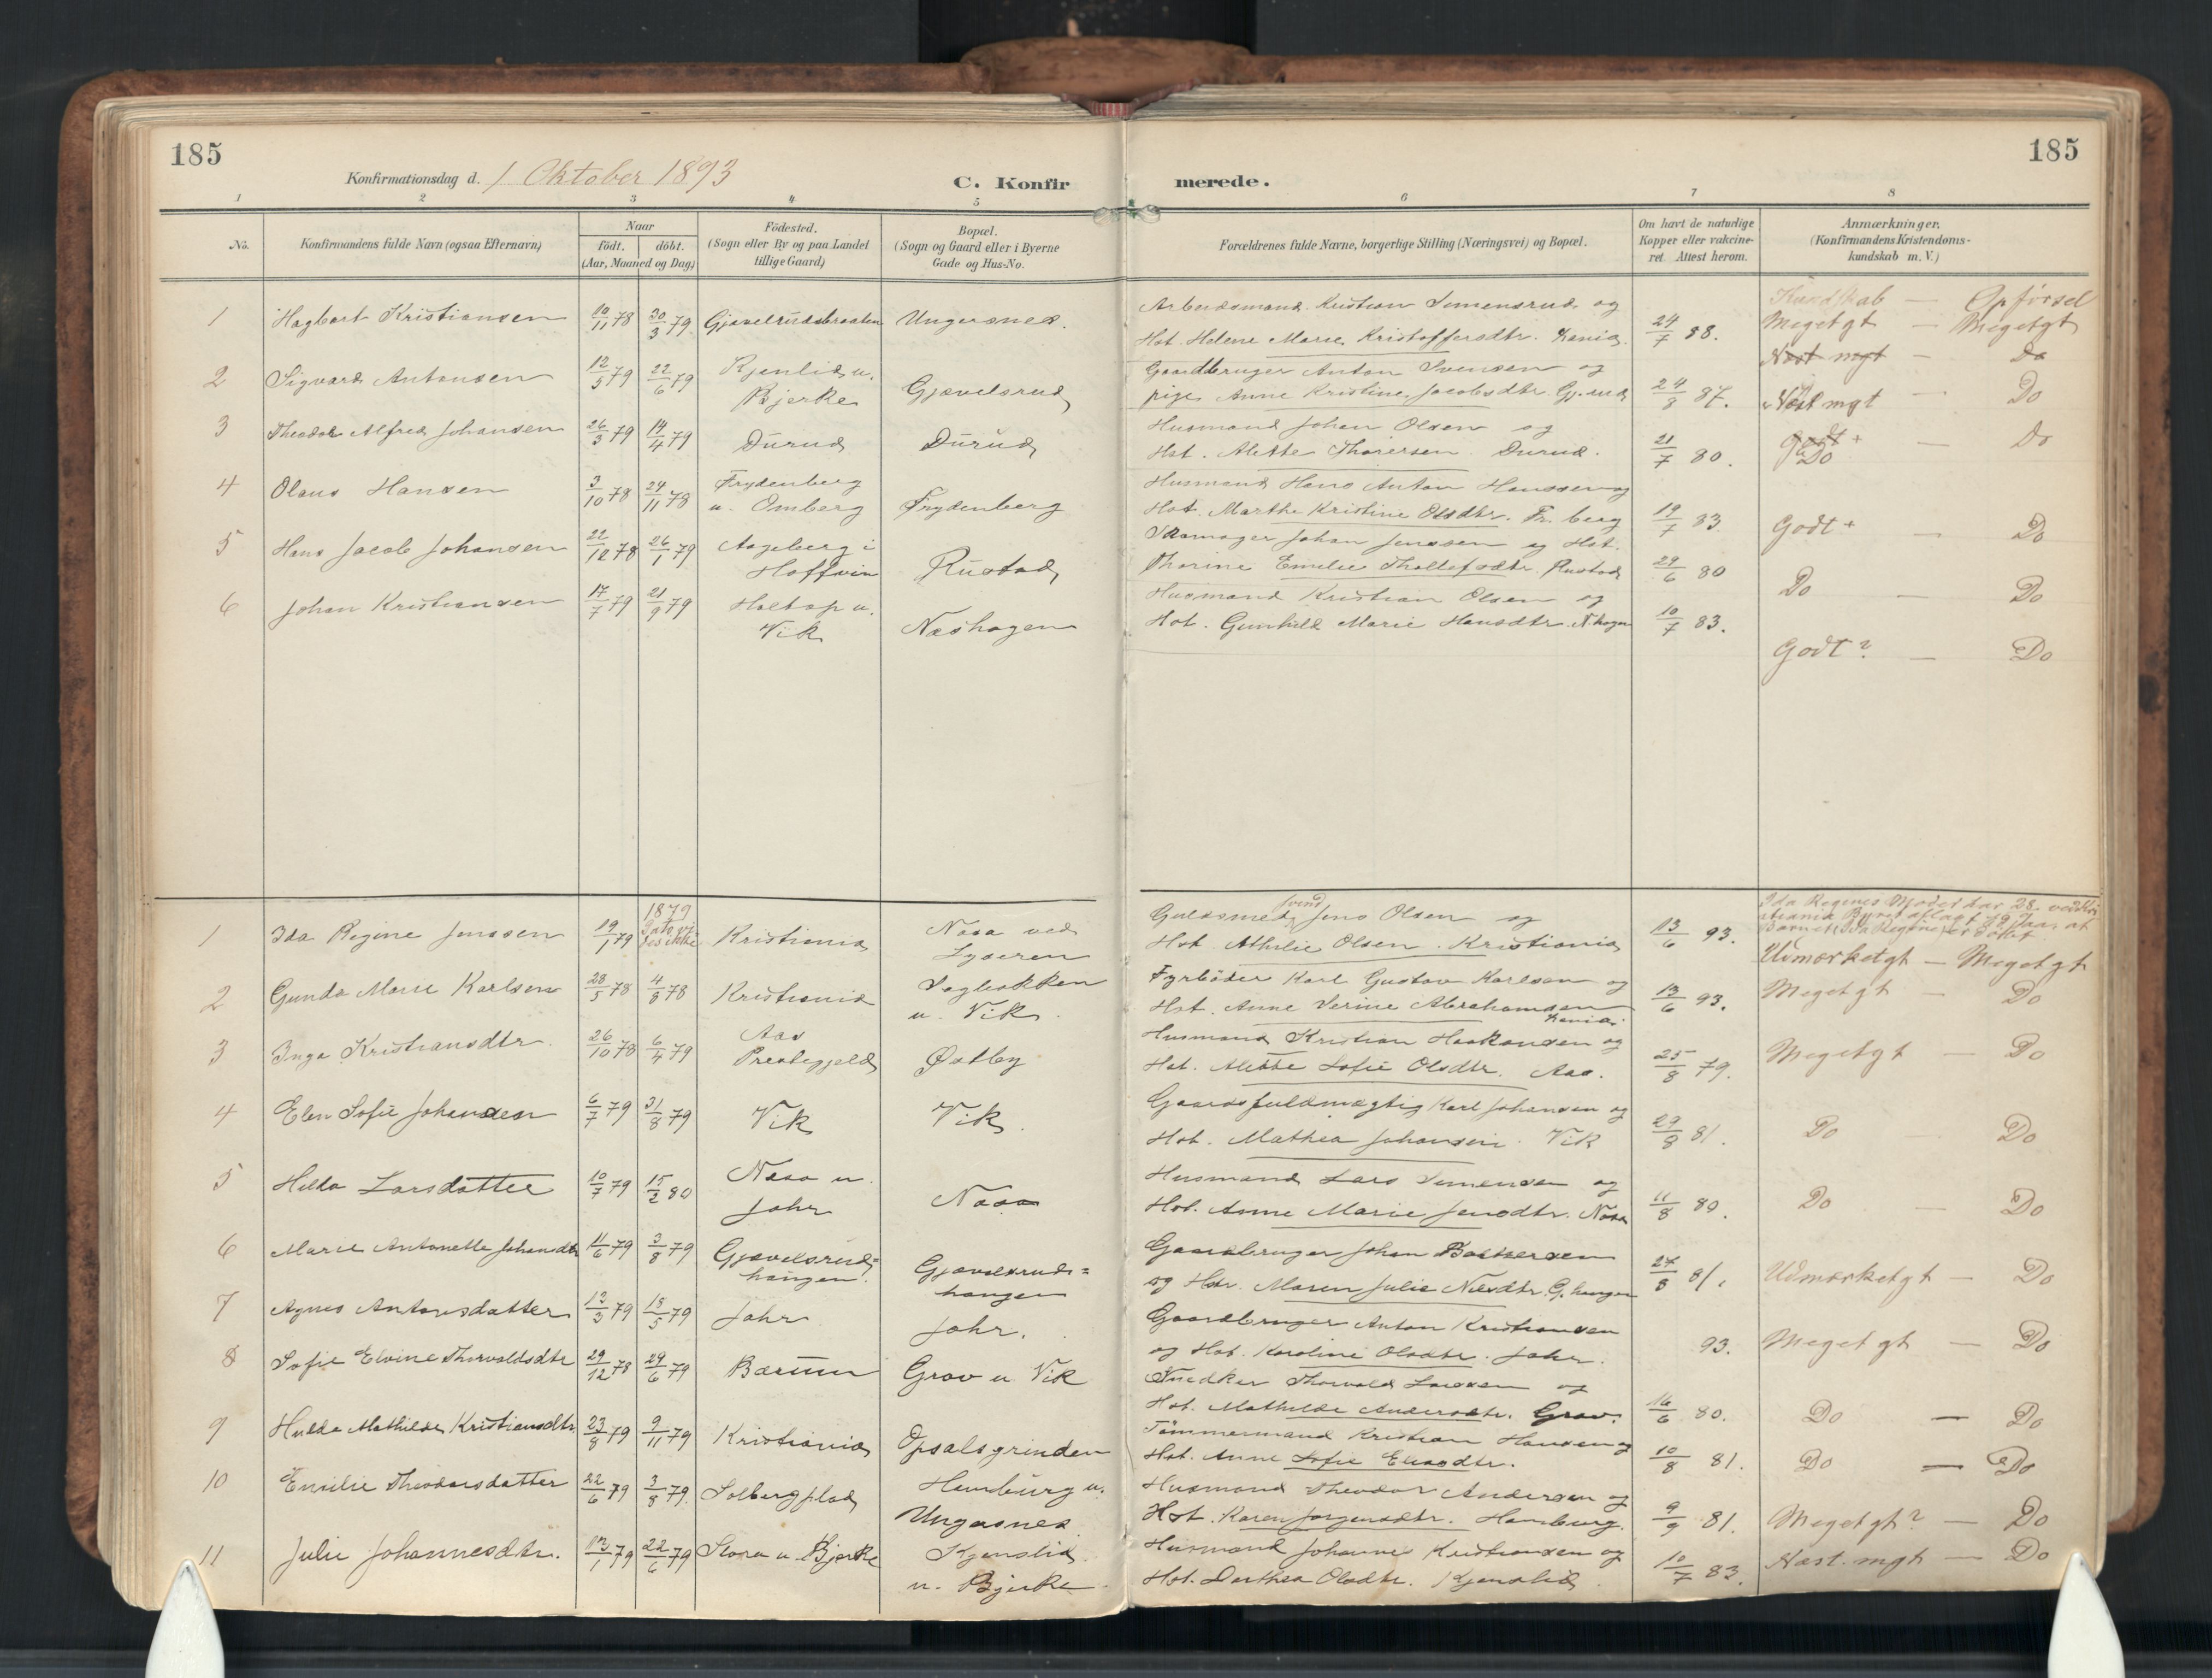 185
185
Konfirmationsdag d. 1 Oktober 1893
C. Konfir
merede.
1 2 3 4 5 6 7 8
No.
Konfirmandens fulde Navn (ogsaa Efternavn)
Naar
födt. döbt.
(Aar, Maaned og Dag)
Födested.
(Sogn eller By og paa Landet
tillige Gaard)
Bopæl.
(Sogn og Gaard eller i Byerne
Gade og Hus-No.
Forældrenes fulde Navne, borgerlige Stilling (Næringsvei) og Bopæl.
Om havt de naturlige
Kopper eller vakcine-
ret. Attest herom.
Anmærkninger.
(Konfirmandens Kristendoms-
kundskab m. V.)
Kundskab — Opförsel
1 Hagbart Kristiansen 10/11 78 30/3 79 Gjævelrudsbraaten Ungersnes.
Arbeidsmand Kristian Simensrud og
Hst. Helene Marie Kristoffersdtr. Krania. 24/7 88. Megetgt — Megetgt
Næst mgt — Do
2 Sigvard Antonsen 12/5 79 22/6 79 Kjenlid u. Bjerke Gjævelsrud
Gaardbruger Anton Svensen og
pige Anne Kristine Jacobsdtr. Gj.rud 24/8 87. Næst mgt — Do
3 Theodor Alfred Johansen 26/3 79 14/4 79 Durud Durud
Husmand Johan Olsen og
Hst. Alette Thorersen. Durud. 21/7 80. Godt + Do — Do
4 Olaus Hansen 3/10 78 24/11 78 Frydenberg u. Omberg Frydenberg
Husmand Hans Anton Hanssen og
Hst. Marthe Kristine Olsdtr. Fr. berg 19/7 83. Godt + — Do
5 Hans Jacob Johansen 22/12 78 26/1 79 Aageberg i Hoffvin Rustad
Skomager Johan Jenssen og Hst.
Thorine Emilie Thollefsdtr. Rustad 29/6 80 Do — Do
6 Johan Kristiansen 17/7 79 21/9 79 Holtop u. Vik Næshagen
Husmand Kristian Olsen og
Hst. Gunhild Marie Hansdtr. N.hagen 10/7 83. Godt? — Do
1 Ida Regine Jenssen 19/1 79 1879 Dato vi des ikke Kristiania Nasa ved Lyseren
Guldsmedsvend Jens Olsen og
Hst. Athilie Olsen. Kristiania 13/6 93.
Ida Regines Moder har 28. ved Kri
stiania Byret aflagt Ed paa, at
Barnet Ida Regine er döbt
Udmærketgt — Megetgt
2 Gunda Marie Karlsen 28/5 78 4/8 78 Kristiania Sagbakken u. Vik.
Fyrböder Karl Gustav Karlsen og
Hst. Anne Verine Abrahamsen Krania. 13/6 93. Megetgt — Do
3 Inga Kristiansdtr. 26/10 78 6/4 79 Aas Prestegjeld Østby
Husmand Kristian Haakonsen og
Hst. Alette Sofie Olsdtr. Aas. 25/8 79. Megetgt — Do
4 Elen Sofie Johansen 6/7 79 31/8 79 Vik Vik.
Gaardsfuldmægtig Karl Johansen og
Hst. Mathea Johansen. Vik 29/8 81. Do Do
5 Hilda Larsdatter 10/7 79 15/2 80 Nasa u. Jahr Nasa
Husmand Lars Simensen og
Hst. Anne Marie Jensdtr. Nasa 11/8 80. Do — Do
6 Marie Antonette Johansdtr 11/6 79 3/8 79 Gjævelsruds= haugen. Gjævelsruds= haugen
Gaardbruger Johan Baltsersen
og Hstr. Maren Julie Nilsdtr. Gj. haugen 27/8 81. Udmærketgt — Do
7 Agnes Antonsdatter 13/3 79 18/5 79 Jahr Jahr.
Gaardbruger Anton Kristiansen
og Hst. Karoline Olsdtr. Jahr. 93. Megetgt — Do
8 Sofie Elvine Thorvaldsdtr 29/12 78 29/6 79 Bærum Grav u Vik
Snedker Thorvald Larssen og
Hst. Mathilde Andersdtr. Grav. 16/6 80. Do — Do
9 Hulda Mathilde Kristiansdtr 23/8 79 9/11 79 Kristiania Opsalsgrinden
Tömmermand Kristian Hansen og
Hst. Anne Sofie Eliasdtr. 10/8 81. Do — Do
10 Emilie Theodorsdatter 22/6 79 3/8 79. Solbergplads Hamburg u. Ungersnes.
Husmand Theodor Andersen og
Hst. Karen Jörgensdtr. Hamburg. 9/9 81. Megetgt? — Do
11 Julie Johannesdtr. 13/1 79 22/6 79 Stora u. Bjerke Kjenslid u. Bjerke
Husmand Johannes Kristiansen og
Hst. Dorthea Olsdtr. Kjenslid. 10/7 83. Næst. mgt — Do